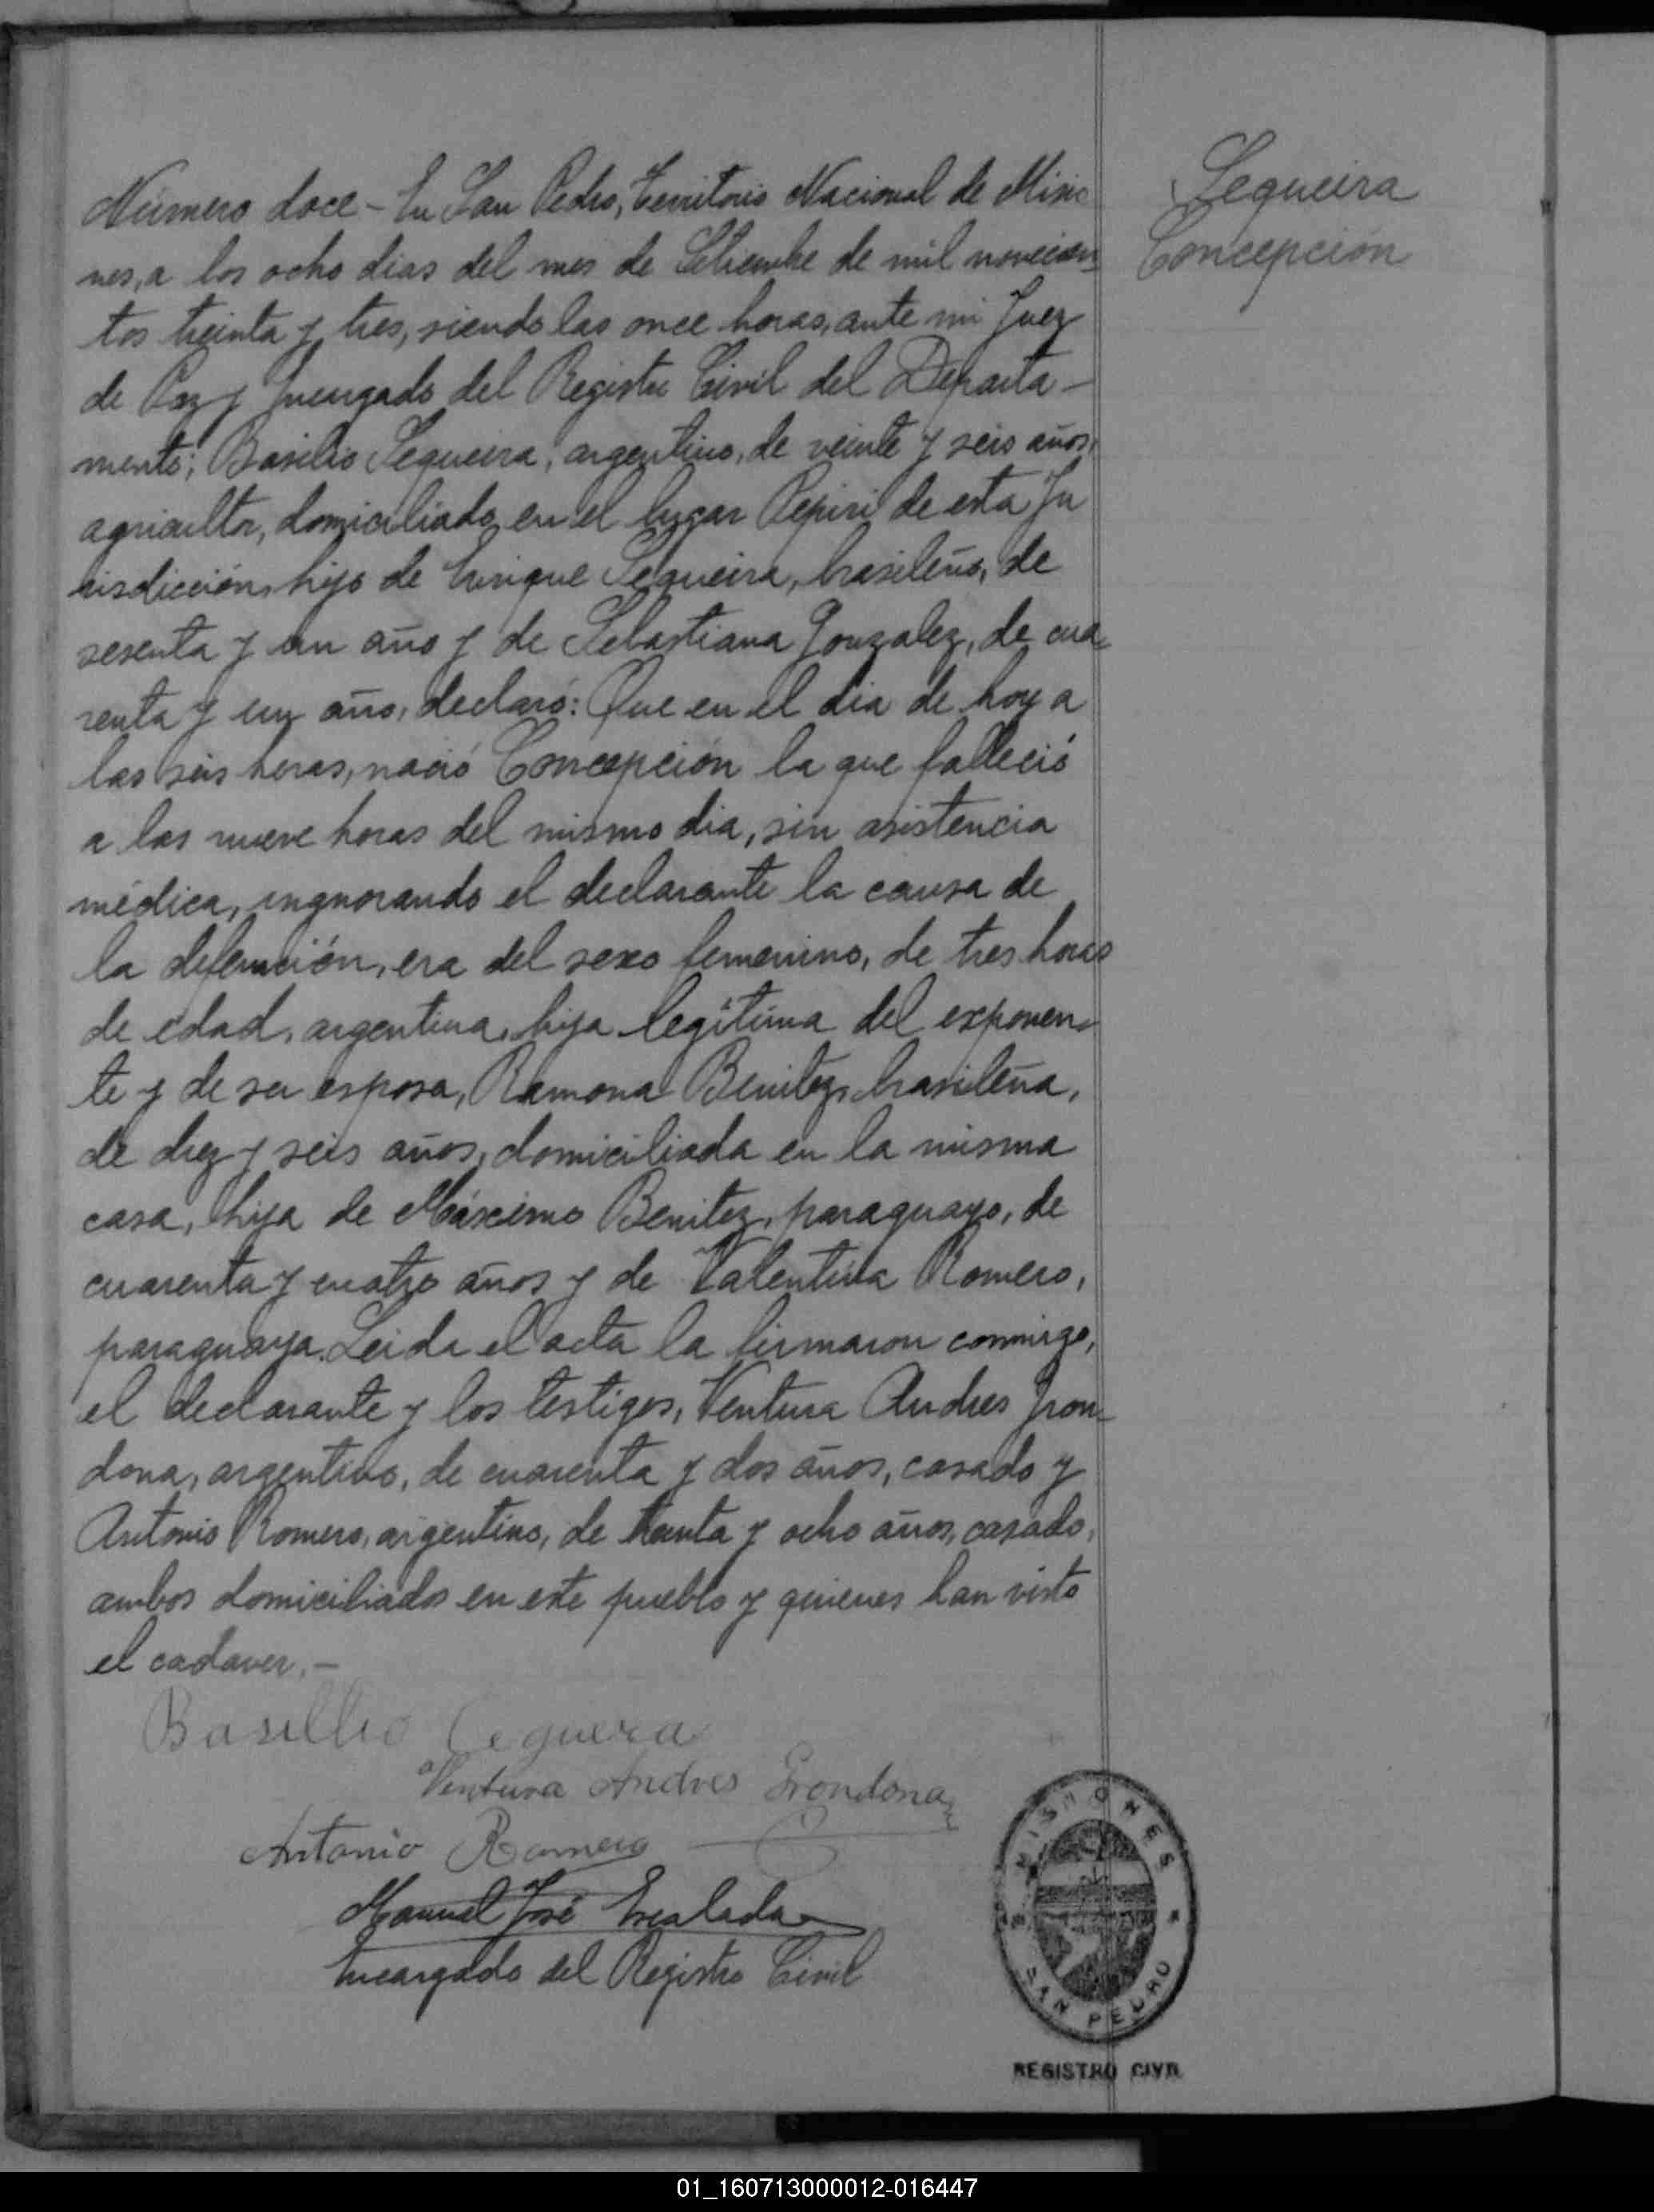 Sequeira
Concepción
Número doce - En San Pedro, Territorio Nacional de Misio
nes, a los ocho dias del mes de Setiembre de mil novecien
tos treinta y tres, siendo las once horas, ante mi Juez
de Paz y Encargado del Registro Civil del Departa-
mento; Basilio Sequeira, argentino, de veinte y seis años,
agricultor, domiciliado en el lugar Pepiri de esta Ju
risdicción, hijo de Enrique Sequeira, brasileño, de
sesenta y un año y de Sebastiana Gonzalez, de cua
renta y un año, declaró: Que en el dia de hoy a
las seis horas, nació Concepción la que falleció
a las nueve horas del mismo dia, sin asistencia
médica, ingnorando el declarante la causa de
la defunción, era del sexo femenino, de tres horas
de edad, argentina, hija legítima del exponen-
te y de su esposa, Ramona Benitez, brasileña,
de diez y seis años, domiciliada en la misma
casa, hija de Máximo Benitez, paraguayo, de
cuarenta y cuatro años y de Valentina Romero,
paraguaya. Leida el acta la firmaron conmigo,
el declarante y los testigos, Ventura Andres Gron-
dona, argentino, de cuarenta y dos años, casado y
Antonio Romero, argentino, de treinta y ocho años, casado,
ambos domiciliados en este pueblo y quienes han visto
el cadaver. -
Basillio Cequera
Ventura Andres Grondona
Antonio Romero
Manuel José
Encargado del Registro Civil
MISIONES
SAN PEDRO
REGISTRO CIVIL
01_160713000012-016447